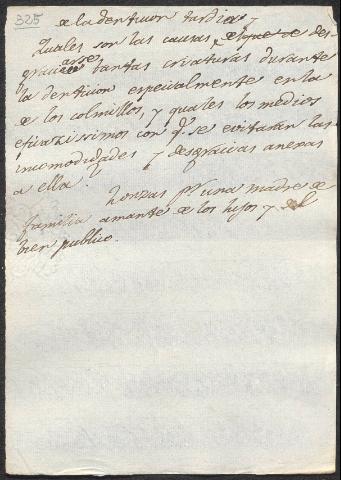 325
a la denticion tardia, y
Quales son las causas de que se des-
gracien tantas criaturas durante
la denticion especialmente en la
de los colmillos y quales los medios
eficazissimos con q.e se evitarán las
incomodidades y desgracias anexas
a ella?
p.r una madre de
familia amante de los hijos y del
bien publico.